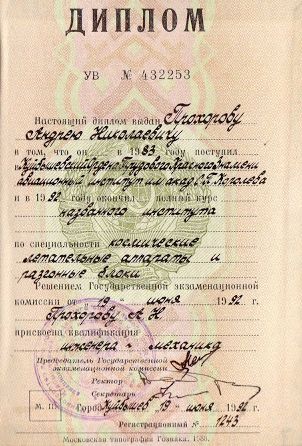 ДИПЛОМ
УВ № 432253
Настоящий диплом выдан Прохорову
Андрею Николаевичу
в том, что он в 1983 году поступил
в Куйбышевский ордена Трудового Красного Знамени
авиационный институт им. акад. С.П. Королева
и в 1992 году окончил полный курс
названного института
по специальности космические
летательные аппараты и
разгонные блоки
Решением Государственной экзаменационной
комиссии от 19 июня 1992 г.
Прохорову А Н
присвоена квалификация
инженера - механика
Председатель Государственной
экзаменационной комиссии
Ректор
Секретарь
М. П. Город Куйбышев 19 июня 1992 г.
Регистрационный № 1243
Московская типография Гознака. 1988.